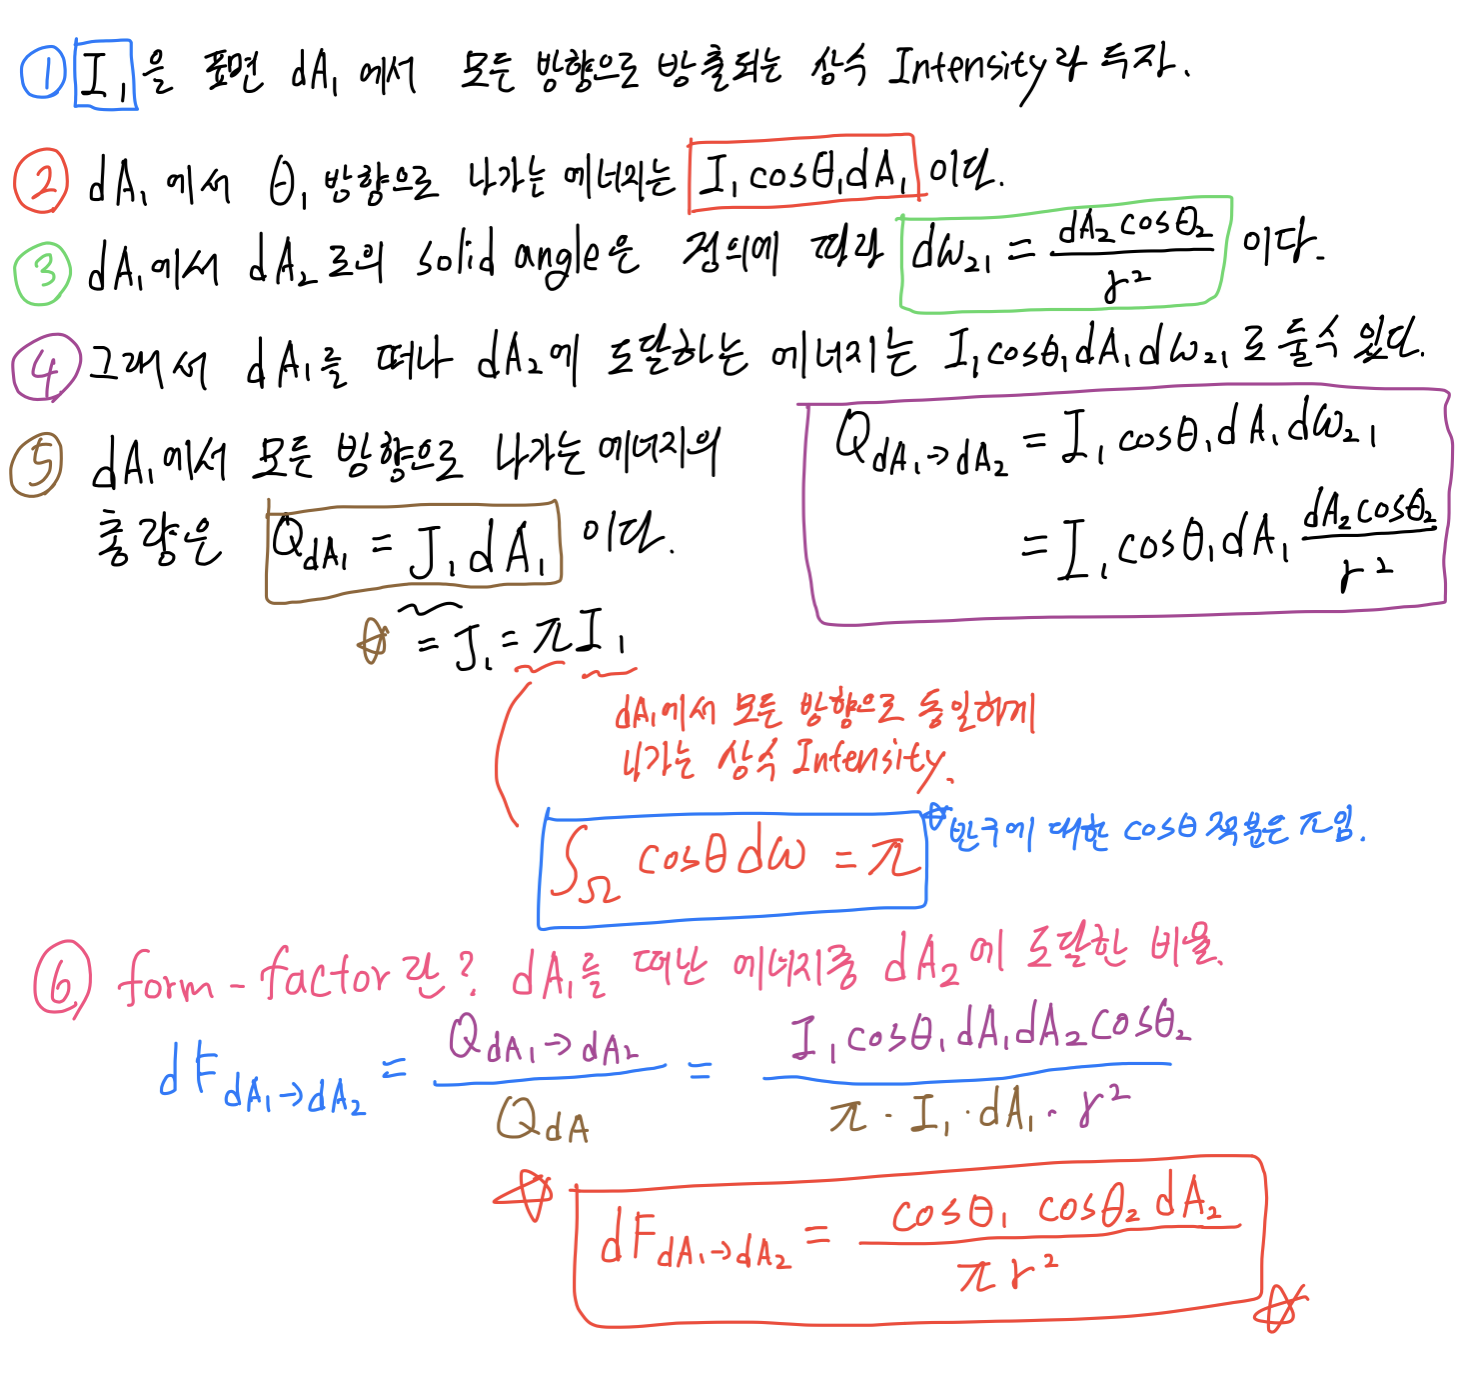 ① I₁ 을 표면 dA₁ 에서 모든 방향으로 방출되는 상수 Intensity라 두자.
② dA₁ 에서 θ₁ 방향으로 나가는 에너지는 I₁ cosθ₁dA₁ 이다.
③ dA₁에서 dA₂ 로의 solid angle은 정의에 따라 dω₂₁ = dA₂ cosθ₂ / r² 이다.
④ 그래서 dA₁를 떠나 dA₂에 도달하는 에너지는 I₁cosθ₁dA₁dω₂₁로 둘수 있다.
Q dA₁→dA₂ = I₁ cosθ₁dA₁dω₂₁
= I₁cosθ₁dA₁ dA₂cosθ₂ / r²
⑤ dA₁에서 모든 방향으로 나가는 에너지의
총량은 Q dA₁ = J₁dA₁ 이다.
☆ = J₁ = πI₁
dA₁에서 모든 방향으로 동일하게
나가는 상수 Intensity.
∫Ω cosθdω = π ☆반구에 대한 cosθ 적분은 π임.
⑥ form-factor란? dA₁를 떠난 에너지중 dA₂에 도달한 비율.
dF dA₁→dA₂ = Q dA₁→dA₂ / Q dA = I₁cosθ₁dA₁dA₂cosθ₂ / π · I₁ · dA₁ · r²
☆ dF dA₁→dA₂ = cosθ₁ cosθ₂ dA₂ / πr² ☆